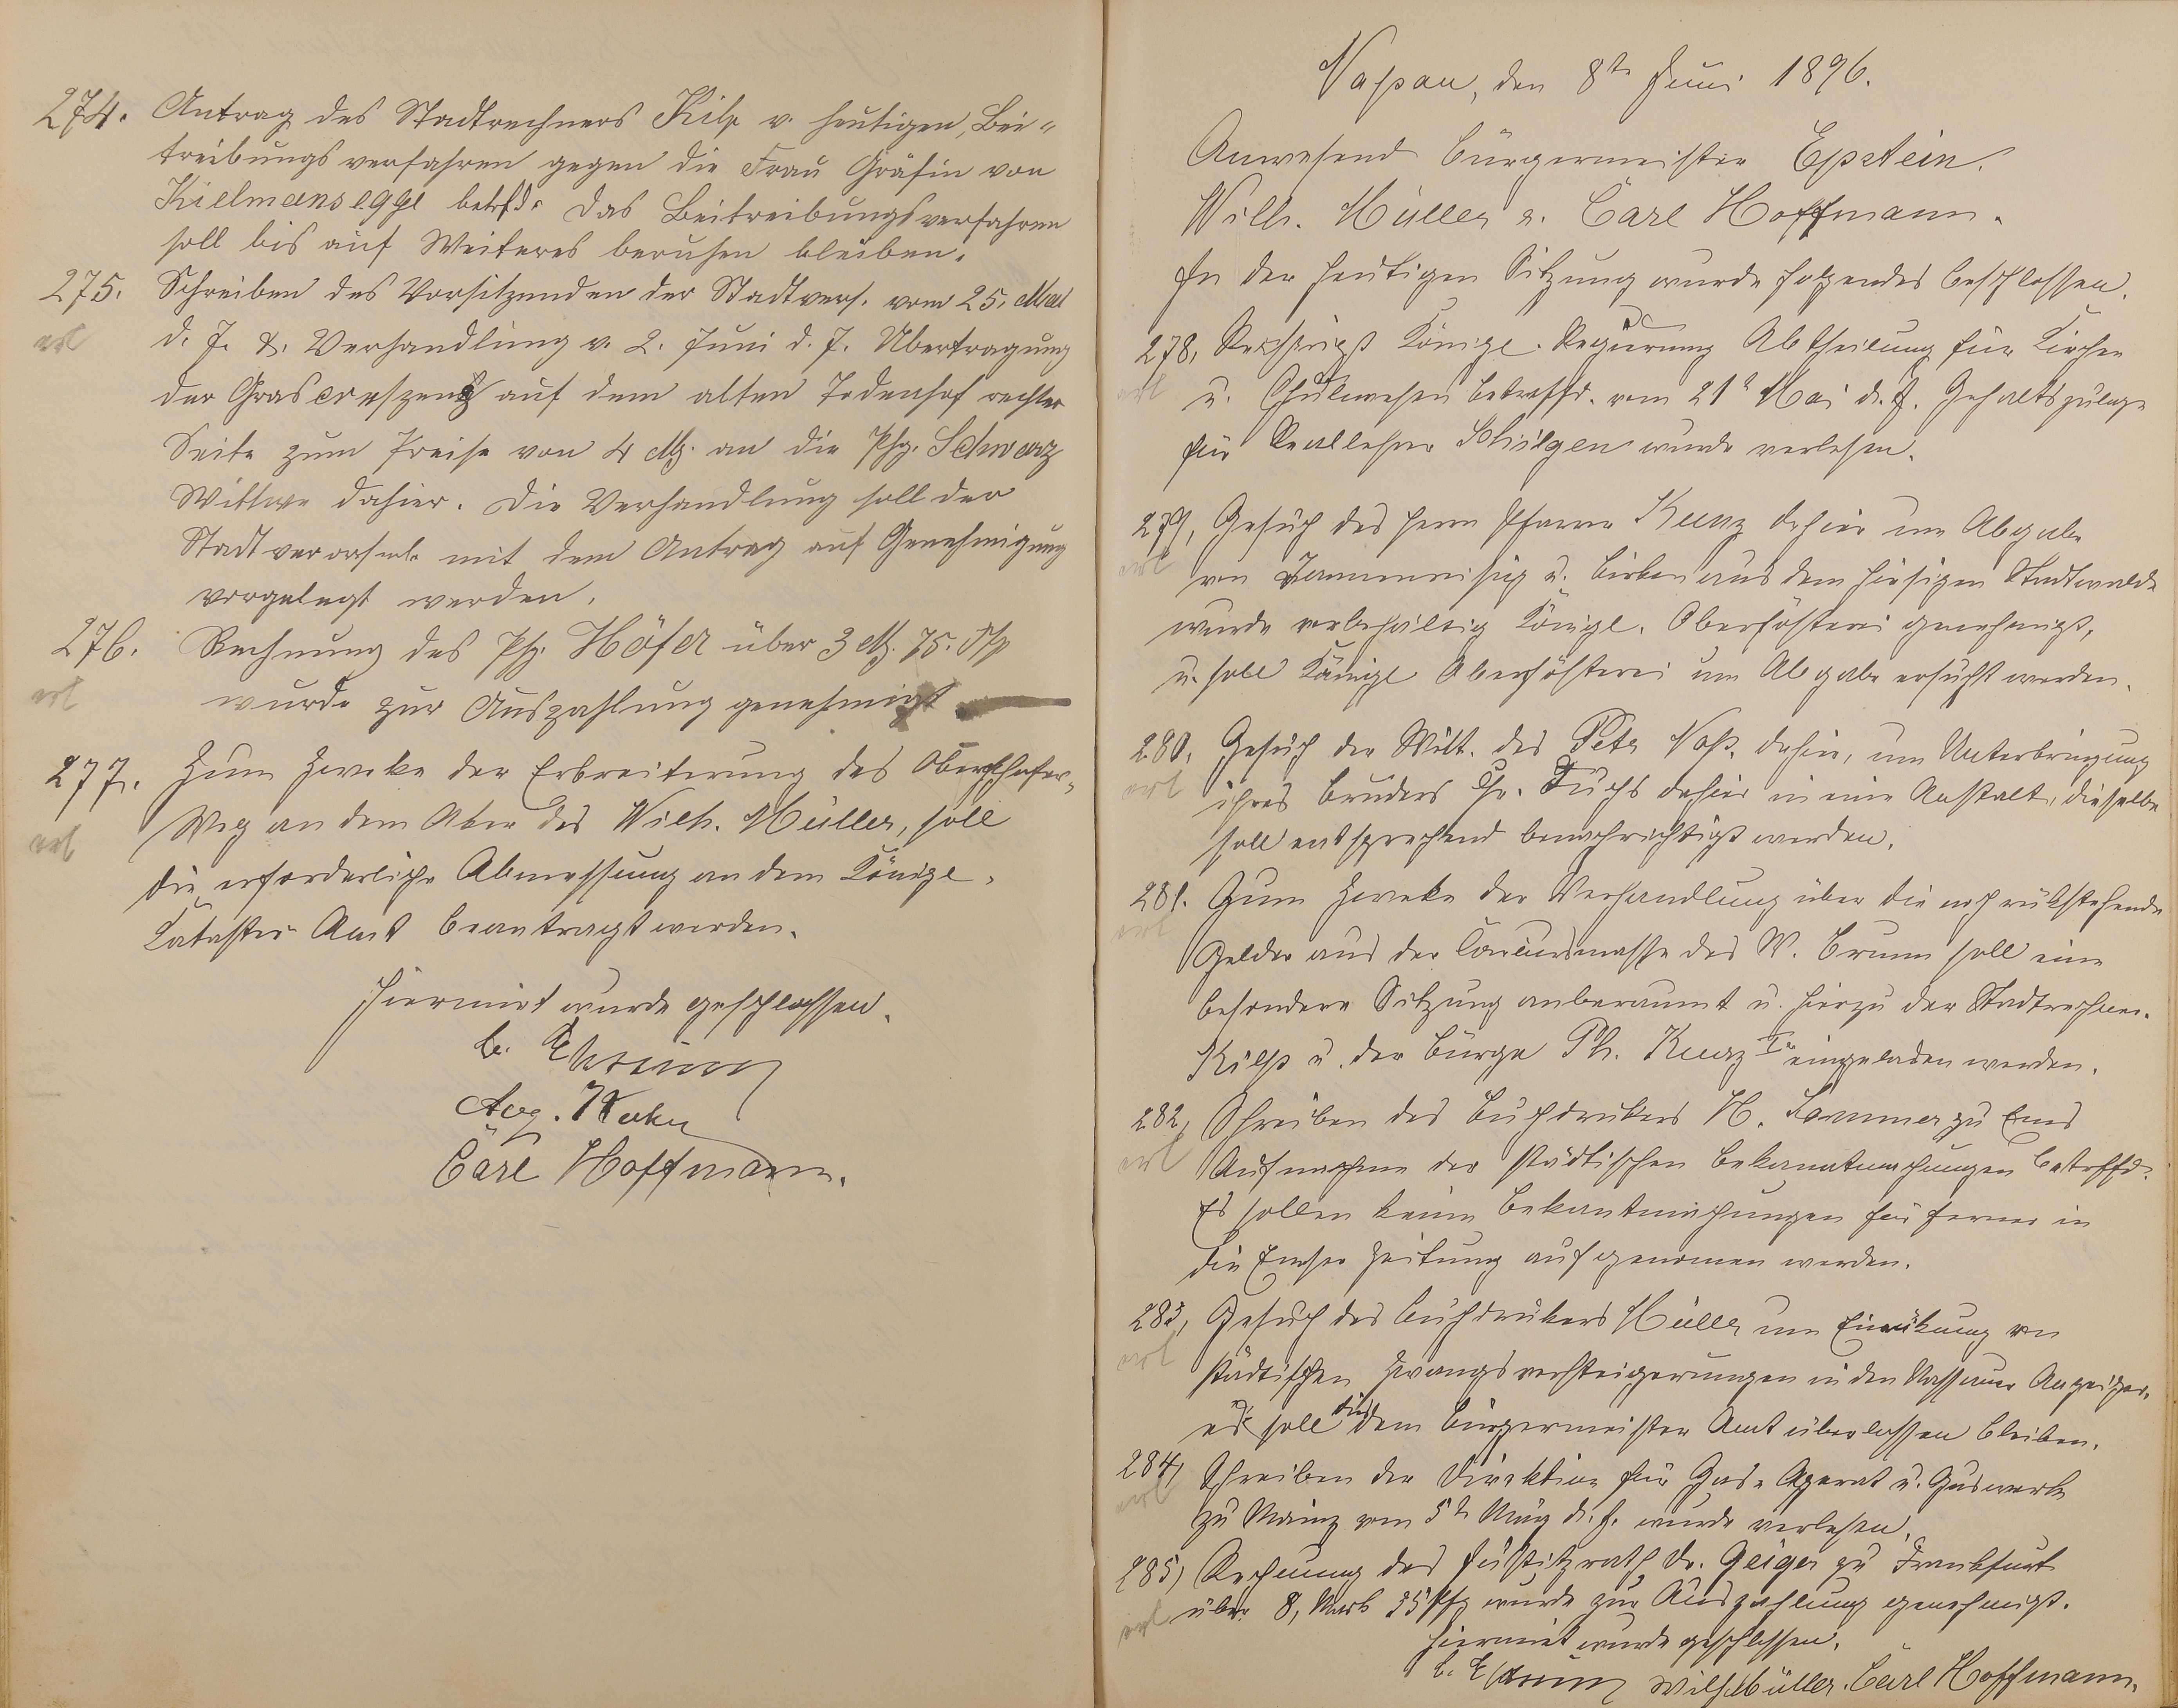 274. Antrag des Stadtrechners Kilp v. heutigen, Bei-
treibungsverfahren gegen die Frau Gräfin von
Kielmansegge betrfd. Das Beitreibungsverfahren
soll bis auf Weiteres beruhen bleiben.
275. Schreiben des Vorsitzenden der Stadtvers. vom 25. Mai
erl d. J. & Verhandlung v. 2. Juni d. J. Übertragung
der Grascreszenz auf dem alten Todenhof rechter
Seite zum Preise von 4 M. an die Phg. Schwarz
Wittwe dahier. Die Verhandlung soll der
Stadtverordnet. mit dem Antrag auf Genehmigung
vorgelegt werden.
276. Rechnung des Ph. Höfer über 3 M. 75. Pfg
erl wurde zur Auszahlung genehmigt
277. Zum Zwecke der Erbreiterung des
erl Weg an dem Aker des Wilh. Müller, soll
die erforderliche Abmessung an dem Königl.
Kataster Amt beantragt werden.
Hiermit wurde geschlossen.
Aug.
Carl Hoffmann.
Nassau, den 8te Juni 1896.
Anwesend Bürgermeister Epstein.
Wilh. Müller u. Carl Hoffmann.
In der heutigen Sitzung wurde folgendes beschlossen.
278, Reskript Königl. Regierung Abtheilung für Kirchen
erl u. Schulwesen betreffd. vom 21t Mai d. J. Gehaltszulage
für Reallehrer wurde verlesen.
279, Gesuch des Herrn Pfarrer Kunz dahier um Abgabe
erl von Tannenreisig u. Birken aus dem hiesigen Stadtwalde
wurde Königl. Oberfösterei genehmigt,
u. soll Königl Oberfösterei um Abgabe ersucht werden.
280, Gesuch der Witt. des Peter Noß. dahier, um Unterbringung
erl ihres Bruders Chr. Fuchs dahier in eine Anstalt, dieselbe
soll entsprechend benachrichtigt werden.
281. Zum Zwecke der Verhandlung über die noch rükstehende
erl Gelder aus der Concursmasse des W. Brumm soll eine
besondere Sitzung anberaumt u. hierzu der Stadtrechner.
Kilp u. der Bürge Ph. Kunz Ir eingeladen werden.
282, Schreiben des Buchdrukers H. Sommer zu Ems
erl Aufnahme der städtischen Bekanntmachungen betreffd.
Es sollen keine Bekantmachungen für ferner in
die Emser Zeitung aufgenomen werden.
283, Gesuch des Buchdrukers Müller um Einrükung von
erl städtischen Zwangsversteigerungen in den Nassauer Anzeiger.
es soll dies dem Bürgermeister Amt überlassen bleiben.
284, Schreiben der Direktion für Gas-Aperat u. Guswerk
erl zu Mainz vom 5t März d. J. wurde verlesen.
285) Rechnung des Justizrath Dr. Geiger zu Frankfurt
erl über 8, Mark 35 Pfg wurde zur Auszahlung genehmigt.
Hiermit wurde geschlossen.
Wilh Müller. Carl Hoffmann.